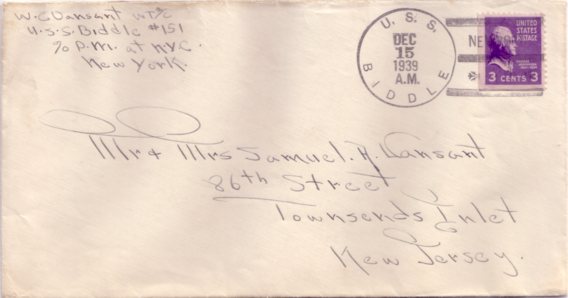 W.C Vansant WT2/c
U.S.S. Biddle #151
c/o P.M. at N.Y.C.
New York.
U. S. S.
DEC
15
1939
A.M.
BIDDLE
NE
UNITED
STATES
POSTAGE
3 CENTS 3
Mr & Mrs Samuel. H. Vansant
86th Street
Townsends Inlet
New Jersey.